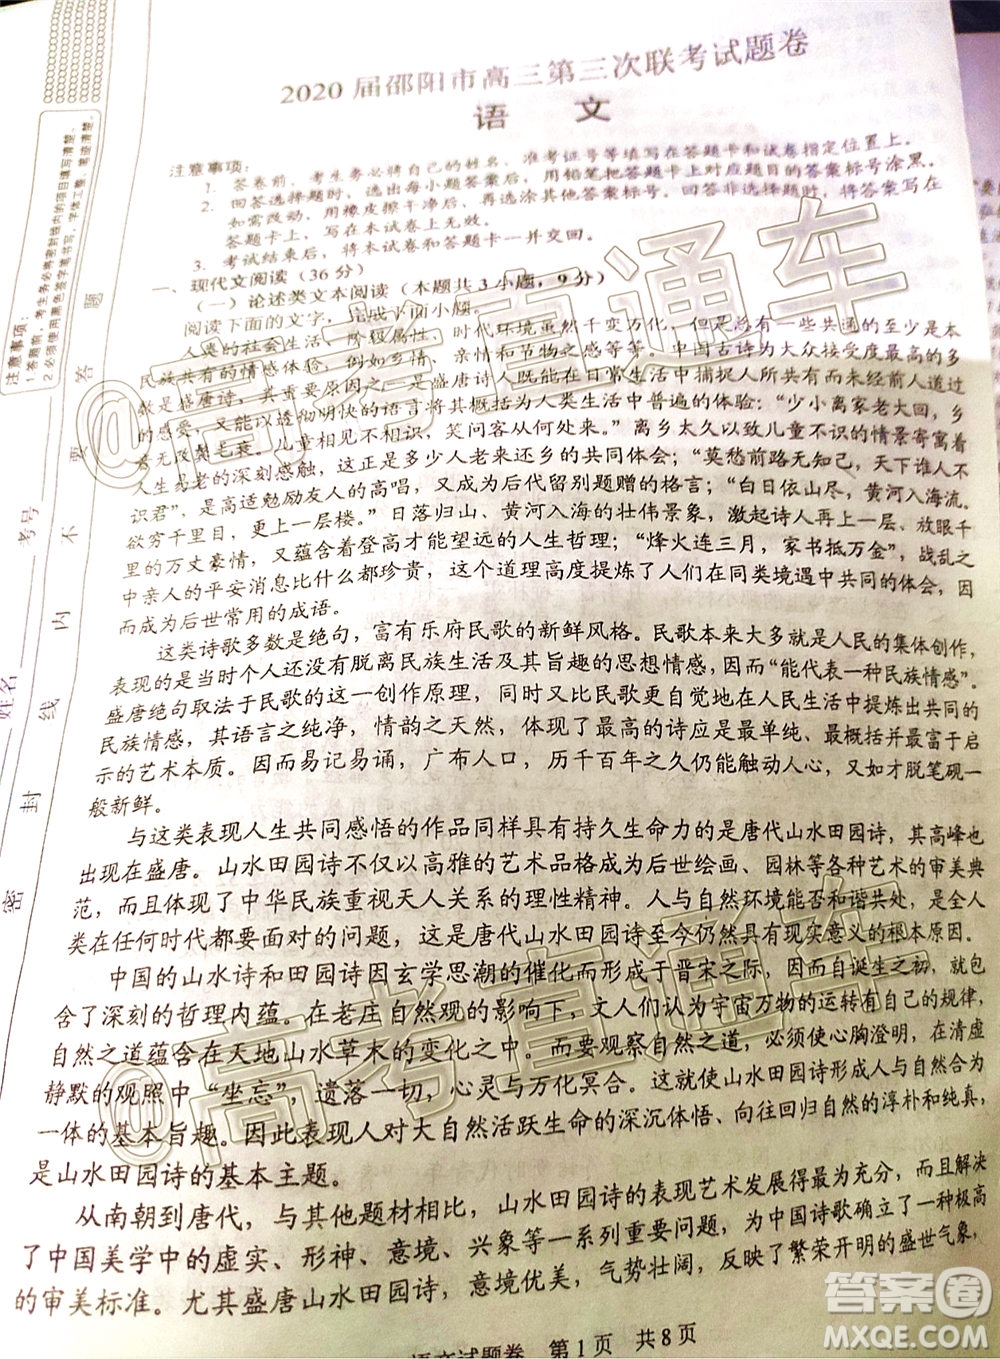 2020 届邵阳市高三第三次联考试题卷
语 文
注意事项：
1. 答卷前，考生务必将自己的姓名、准考证号等填写在答题卡和试卷指定位置上。
2. 回答选择题时，选出每小题答案后，用铅笔把答题卡上对应题目的答案标号涂黑。
如需改动，用橡皮擦干净后，再选涂其它答案标号。回答非选择题时，将答案写在
答题卡上，写在本试卷上无效。
3. 考试结束后，将本试卷和答题卡一并交回。
一、现代文阅读（36 分）
（一）论述类文本阅读（本题共 3 小题，9 分）
阅读下面的文字，完成下面小题。
人类的社会生活、阶级属性，时代环境虽然千变万化，但是总有一些共通的至少在本
民族共有的情感体验，例如乡情、节序之感等等。中国古诗为大众接受度最高的多
数是盛唐诗，其重要原因之一就是盛唐诗人既能在日常生活中捕捉人所共有而未经前人道过
的感受，又能以透彻明快的语言成为人类生活中普遍的体验：“少小离家老大回，乡
音无改鬓毛衰。儿童相见不相识，笑问客从何处来。”离乡太久以致儿童不识的情景寄寓了
人生易老的深刻感触，正是多少人老来还乡的共同体会；“莫愁前路无知己，天下谁人不
识君”，是高适勉励友人的高唱，又成为后代留别题赠的格言；“白日依山尽，黄河入海流。
欲穷千里目，更上一层楼。”日落归山、黄河入海的壮伟景象，激起诗人再上一层、放眼千
里的万丈豪情，又蕴含着登高才能望远的人生哲理；“烽火连三月，家书抵万金”，战乱之
中亲人的平安消息比什么都珍贵，这个道理高度提炼了人们在同类境遇中共同的体会，因
而成为后世常用的成语。
这类诗歌多数是绝句，富有乐府民歌的新鲜风格。民歌本来大多就是人民的集体创作，
表现的是当时人们最关心的社会问题，只要不脱离民族生活及其旨趣的思想情感，因而“能代表一种民族情感”。
盛唐绝句取法于民歌的这一创作原理，同时又比民歌更自觉地在人民生活中提炼出共同的
民族情感，其语言之纯净，情韵之天然，体现了最高的诗应是最单纯、最概括并最富于启
示的艺术本质。因而易记易诵，广布人口，历千百年之久仍能触动人心，又如才脱笔砚一
般新鲜。
与这类表现人生共同感悟的作品同样具有持久生命力的是唐代山水田园诗，其高峰也
出现在盛唐。山水田园诗不仅以高雅的艺术品格成为后世绘画、园林等各种艺术的审美典
范，而且体现了中华民族重视天人关系的理性精神。人与自然环境能否和谐共处，是全人
类在任何时代都要面对的问题，这是唐代山水田园诗至今仍然具有现实意义的根本原因。
中国的山水诗和田园诗因玄学思潮的催化而形成于晋宋之际，因而自诞生之初，就包
含了深刻的哲理内蕴。在老庄自然观的影响下，文人们认为宇宙万物的运转有自己的规律，
自然之道蕴含在天地山水草木的变化之中。而要观察自然之道，必须使心胸澄明，在清虚
静默的观照中“坐忘”，遗落一切，心灵与万化冥合。这就使山水田园诗形成人与自然合为
一体的基本旨趣。因此表现人对大自然活跃生命的深沉体悟、向往回归自然的淳朴和纯真，
是山水田园诗的基本主题。
从南朝到唐代，与其他题材相比，山水田园诗的表现艺术发展得最为充分，而且解决
了中国美学中的虚实、形神、意境、兴象等一系列重要问题，为中国诗歌立下了一种极高
的审美标准。尤其盛唐山水田园诗，意境优美，气势壮阔，反映了繁荣开明的盛世气象，
语文试题卷 第 1 页 共 8 页
注意事项：
1 答题前，考生务必将密封线内的项目填写清楚。
2 必须使用黑色签字笔书写，字体工整、笔迹清楚。
姓名
考号
密 封 线 内 不 要 答 题
@高考直通车
@高考直通车
答案圈
MXQE.COM